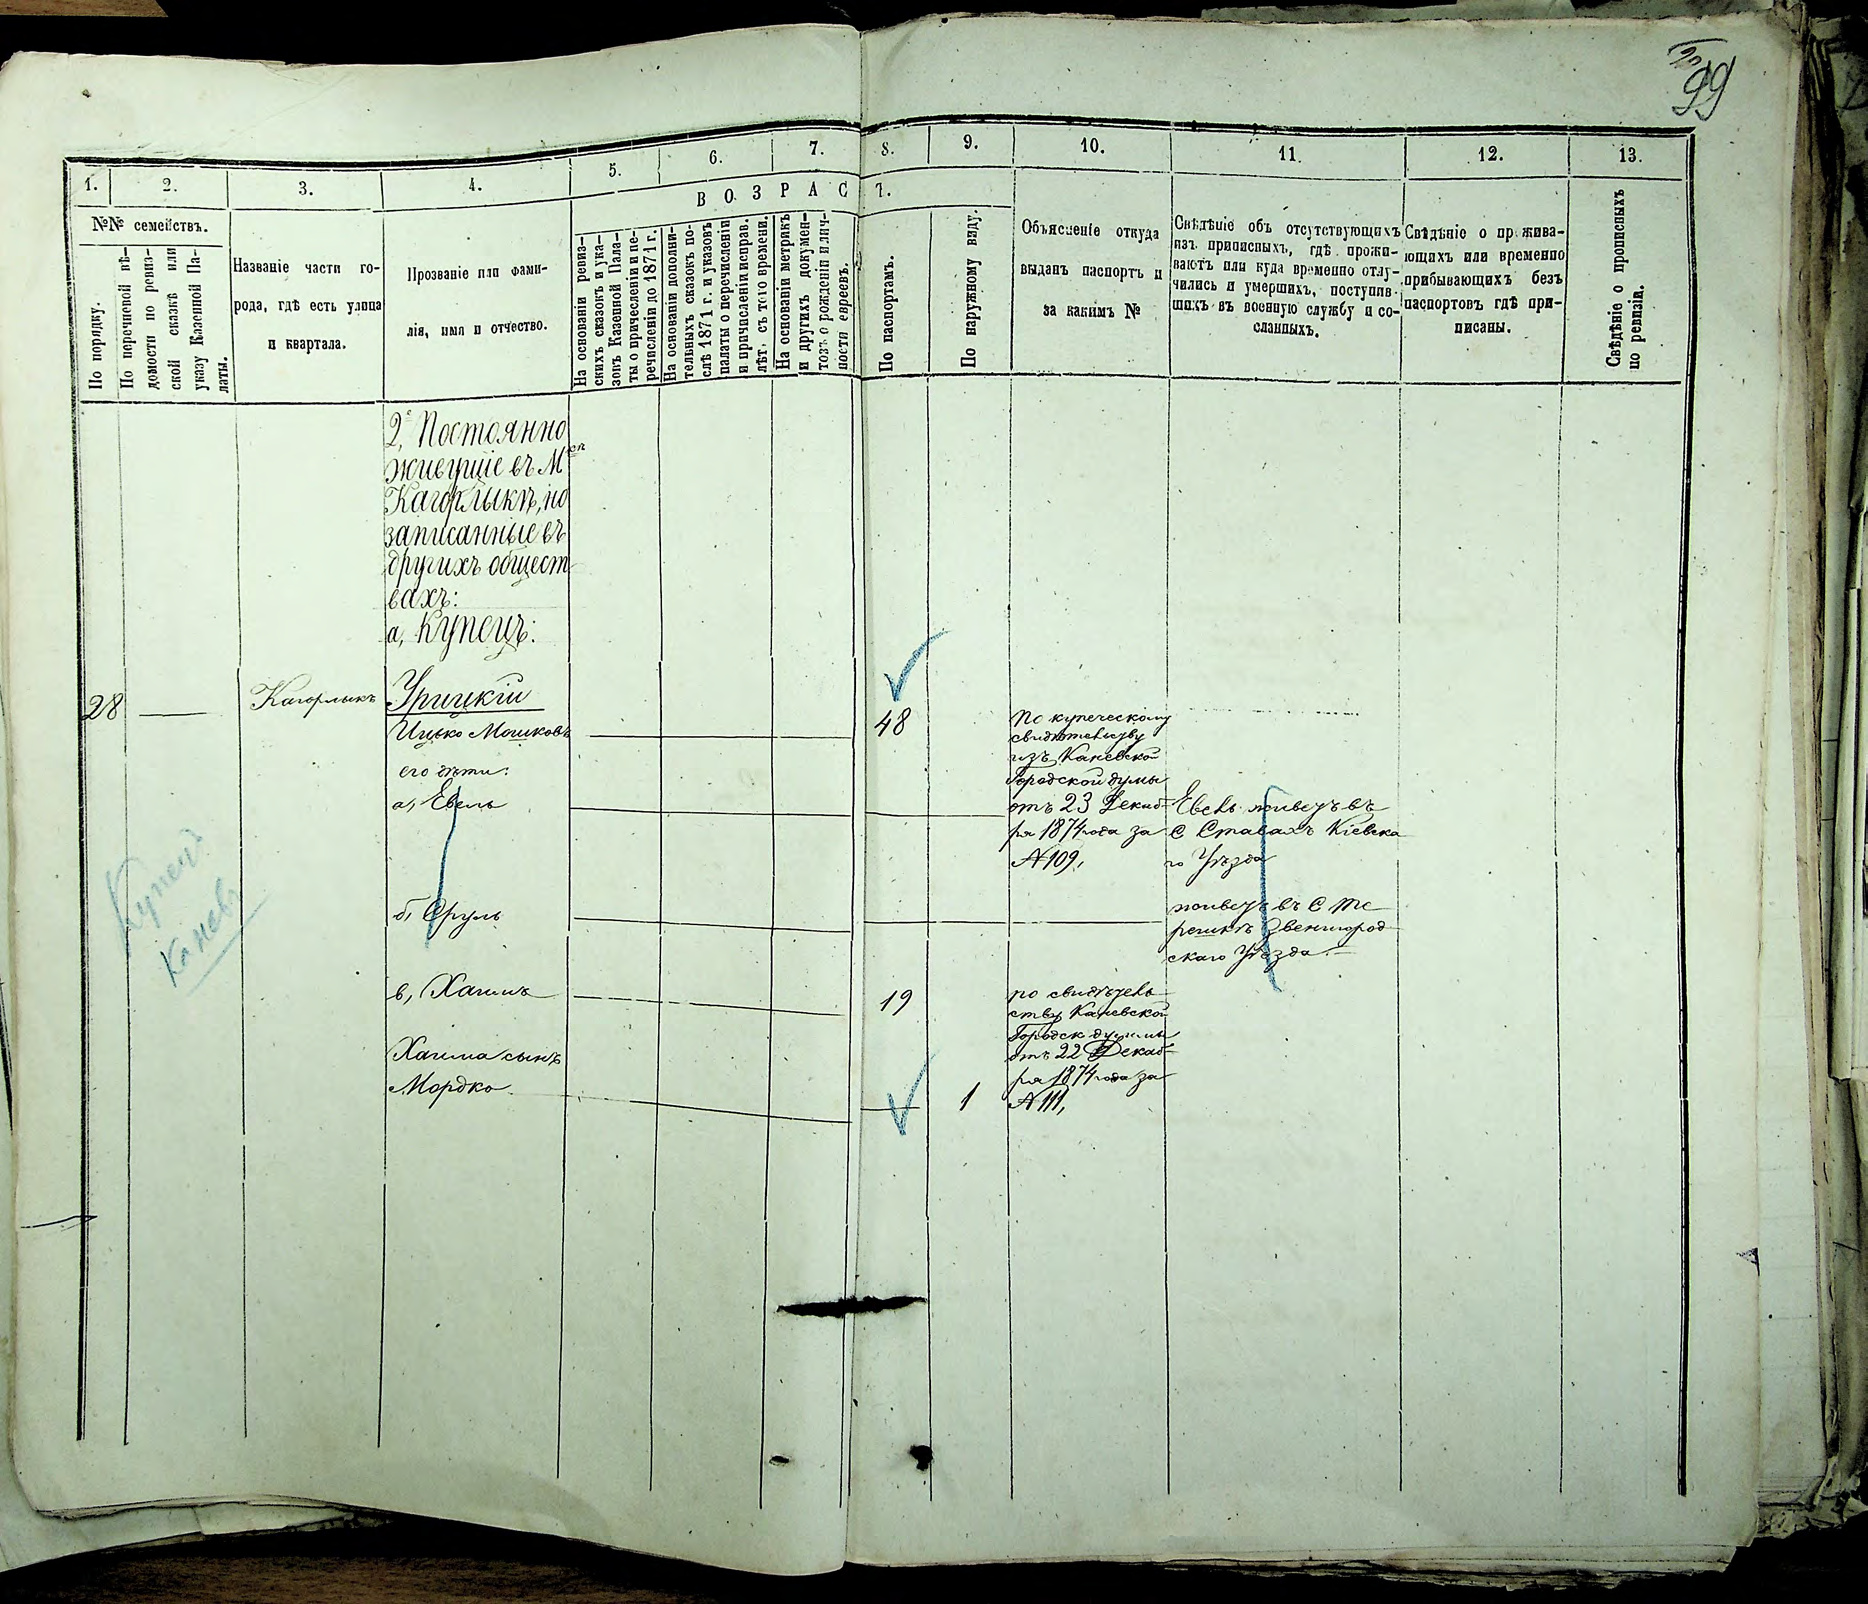 99
1.
2.
3.
4.
5.
6.
7.
8.
9.
10.
11.
12.
13.
В О З Р А С Т.
№№ семействъ.
По порядку.
По перечневой вѣ-
домости по ревиз-
ской сказкѣ или
указу Казенной Па-
латы.
Названіе части го-
рода, гдѣ есть улица
и квартала.
Прозваніе или фами-
лія, имя и отчество.
На основаніи ревиз-
скихъ сказокъ и ука-
зовъ Казенной Пала-
ты о причисленіи и пе-
речисленіи до 1871 г.
На основаніи дополни-
тельныхъ сказокъ по-
слѣ 1871 г. и указовъ
палаты о перечисленіи
и причисленіи исправ.
лѣт. съ того времени.
На основаніи метрикъ
и другихъ докумен-
товъ о рожденіи и лич-
ности евреевъ.
По паспортамъ.
По наружному виду.
Объясненіе откуда
выданъ паспортъ и
за какимъ №
Свѣдѣніе объ отсутствующихъ
изъ приписныхъ, гдѣ прожи-
ваютъ или куда временно отлу-
чились и умершихъ, поступив-
шихъ въ военную службу и со-
сланныхъ.
Свѣдѣніе о прожива-
ющихъ или временно
прибывающихъ безъ
паспортовъ гдѣ при-
писаны.
Свѣдѣніе о прописныхъ
по ревизіи.
2, Постоянно
живущіе въ М
Кагорлыкѣ, но
записанные въ
другихъ общест
вахъ:
а, Купецъ:
28
Кагорлыкъ
Урицкій
Ицько Мошковъ
48
его дѣти:
а, Евель
б, Сруль
в, Хаимъ
19
Хаима сынъ
Мордко
1
По купеческому
свидѣтельству
изъ Каневской
Городской думы
отъ 23 Декаб-
ря 1874 года за
№ 109,
Евель живетъ въ
С Ставахъ Кіевска
го Уѣзда
живетъ въ С Те
решкѣ Звенигород
скаго Уѣзда.
по свидѣтель
ству Каневской
Городск думы
отъ 22 Декаб-
ря 1874 года за
№ 111,
Купецъ
Каневъ